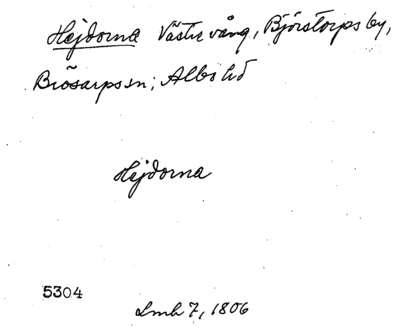 Hejdorna Västre vång, Björstorps by,
Brösarps sn; Albo hd
Hejdorna
5304
Lmh 7, 1806